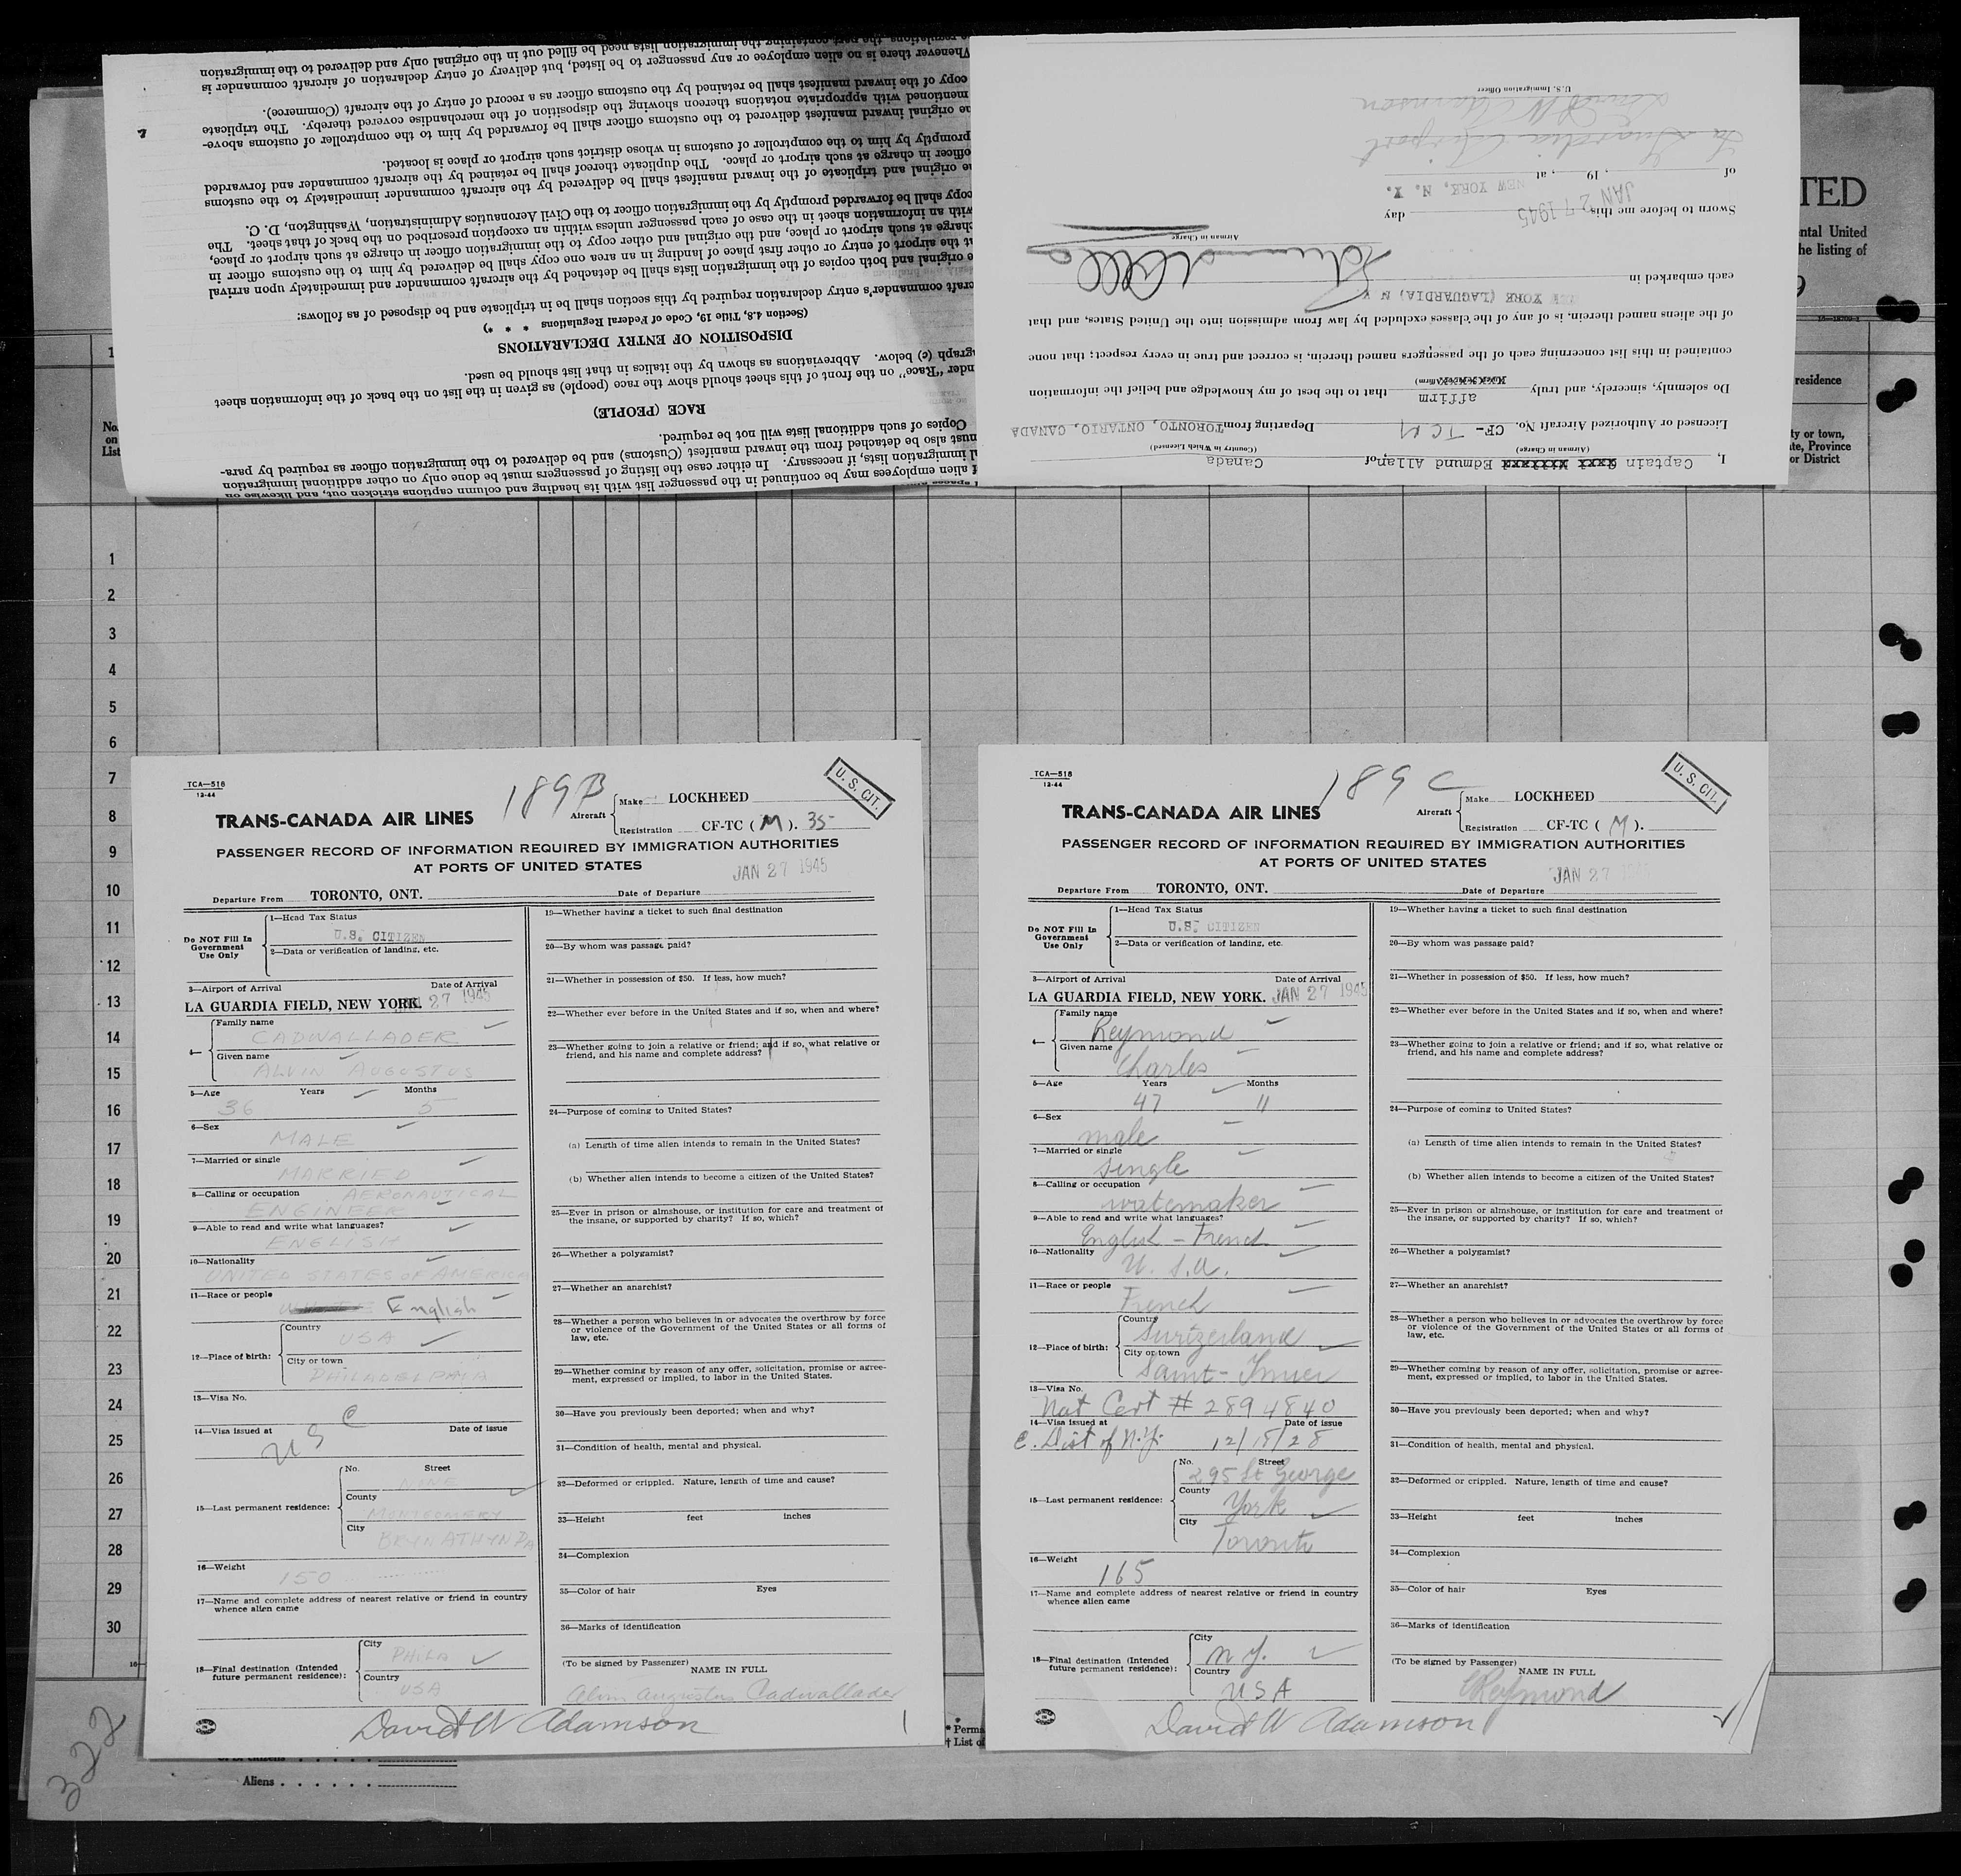 Whenever there is no alien employee or any passenger to be listed, but delivery of entry declaration of aircraft commander is
copy of the inward manifest shall be retained by the customs officer as a record of entry of the aircraft (Commerce).
mentioned with appropriate notations thereon showing the disposition of the merchandise covered thereby. The triplicate
e original inward manifest delivered to the customs officer shall be forwarded by him to the comptroller of customs above-
promptly by him to the comptroller of customs in whose district such airport or place is located.
officer in charge at such airport or place. The duplicate thereof shall be retained by the aircraft commander and forwarded
e original and triplicate of the inward manifest shall be delivered by the aircraft commander immediately to the customs
copy shall be forwarded promptly by the immigration officer to the Civil Aeronautics Administration, Washington, D. C.
with an information sheet in the case of each passenger unless within an exception prescribed on the back of that sheet. The
charge at such airport or place, and the original and other copy to the immigration officer in charge at such airport or place,
t the airport of entry or other first place of landing in an area one copy shall be delivered by him to the customs officer in
e original and both copies of the immigration lists shall be detached by the aircraft commander and immediately upon arrival
craft commander's entry declaration required by this section shall be in triplicate and be disposed of as follows:
(Section 4.8, Title 19, Code of Federal Regulations * * *)
DISPOSITION OF ENTRY DECLARATIONS
agraph (c) below. Abbreviations as shown by the italics in that list should be used.
nder "Race" on the front of this sheet should show the race (people) as given in the list on the back of the information sheet
RACE (PEOPLE)
Copies of such additional lists will not be required.
must also be detached from the inward manifest (Customs) and be delivered to the immigration officer as required by para-
l immigration lists, if necessary. In either case the listing of passengers must be done only on other additional immigration
f alien employees may be continued in the passenger list with its heading and column captions stricken out, and likewise on
I, Captain Edmund Allan, of Canada
(Airman in Charge) (Country in Which Licensed)
Licensed or Authorized Aircraft No. CF- TCM Departing from TORONTO, ONTARIO, CANADA
affirm
Do solemnly, sincerely, and truly that to the best of my knowledge and belief the information
contained in this list concerning each of the passengers named therein, is correct and true in every respect; that none
of the aliens named therein, is of any of the classes excluded by law from admission into the United States, and that
NEW YORK (LAGUARDIA) N Y
each embarked in
Airman in Charge
Sworn to before me this day
JAN 27 1945 NEW YORK, N. Y.
of , 19 , at
La Guardia Airport
David W Adamson
U. S. Immigration Officer
TED
ntal United
he listing of
9
residence
ty or town,
te, Province
or District
1
No.
on
List
1
2
3
4
5
6
7
8
9
10
11
12
13
14
15
16
17
18
19
20
21
22
23
24
25
26
27
28
29
30
TCA—518
12-44
189B
U. S. CIT.
TRANS-CANADA AIR LINES
Aircraft
Make LOCKHEED
Registration CF-TC ( M ). 35
PASSENGER RECORD OF INFORMATION REQUIRED BY IMMIGRATION AUTHORITIES
AT PORTS OF UNITED STATES
JAN 27 1945
Departure From TORONTO, ONT. Date of Departure
Do NOT Fill In
Government
Use Only
1—Head Tax Status
U.S. CITIZEN
2—Data or verification of landing, etc.
3—Airport of Arrival Date of Arrival
LA GUARDIA FIELD, NEW YORK. JAN 27 1945
4—
Family name
CADWALLADER
Given name
ALVIN AUGUSTUS
5—Age Years Months
36 5
6—Sex
MALE
7—Married or single
MARRIED
8—Calling or occupation AERONAUTICAL
ENGINEER
9—Able to read and write what languages?
ENGLISH
10—Nationality
UNITED STATES OF AMERICA
11—Race or people
English
12—Place of birth:
Country
USA
City or town
PHILADELPHIA
13—Visa No.
14—Visa issued at Date of issue
U S C
15—Last permanent residence:
No. Street
NONE
County
MONTGOMERY
City
BRYN ATHYN PA
16—Weight
150
17—Name and complete address of nearest relative or friend in country
whence alien came
18—Final destination (Intended
future permanent residence):
City
PHILA
Country
USA
19—Whether having a ticket to such final destination
20—By whom was passage paid?
21—Whether in possession of $50. If less, how much?
22—Whether ever before in the United States and if so, when and where?
23—Whether going to join a relative or friend; and if so, what relative or
friend, and his name and complete address?
24—Purpose of coming to United States?
(a) Length of time alien intends to remain in the United States?
(b) Whether alien intends to become a citizen of the United States?
25—Ever in prison or almshouse, or institution for care and treatment of
the insane, or supported by charity? If so, which?
26—Whether a polygamist?
27—Whether an anarchist?
28—Whether a person who believes in or advocates the overthrow by force
or violence of the Government of the United States or all forms of
law, etc.
29—Whether coming by reason of any offer, solicitation, promise or agree-
ment, expressed or implied, to labor in the United States.
30—Have you previously been deported; when and why?
31—Condition of health, mental and physical.
32—Deformed or crippled. Nature, length of time and cause?
33—Height feet inches
34—Complexion
35—Color of hair Eyes
36—Marks of identification
(To be signed by Passenger)
NAME IN FULL
Alvin Augustus Cadwallader
David W Adamson
TCA—518
12-44
189 C
U. S. CIT.
TRANS-CANADA AIR LINES
Aircraft
Make LOCKHEED
Registration CF-TC ( M ).
PASSENGER RECORD OF INFORMATION REQUIRED BY IMMIGRATION AUTHORITIES
AT PORTS OF UNITED STATES
JAN 27
Departure From TORONTO, ONT. Date of Departure
Do NOT Fill In
Government
Use Only
1—Head Tax Status
U.S. CITIZEN
2—Data or verification of landing, etc.
3—Airport of Arrival Date of Arrival
LA GUARDIA FIELD, NEW YORK. JAN 27 1945
4—
Family name
Reymond
Given name
Charles
5—Age Years Months
47 11
6—Sex
male
7—Married or single
single
8—Calling or occupation
watcmaker
9—Able to read and write what languages?
English - French
10—Nationality
U. S. A.
11—Race or people
French
12—Place of birth:
Country
Switzerland
City or town
Saint-Imier
13—Visa No.
Nat Cert # 2894840
14—Visa issued at Date of issue
Dist of N.Y. 12/18/28
15—Last permanent residence:
No. Street
295 St George
County
York
City
Toronto
16—Weight
165
17—Name and complete address of nearest relative or friend in country
whence alien came
18—Final destination (Intended
future permanent residence):
City
N.Y.
Country
USA
19—Whether having a ticket to such final destination
20—By whom was passage paid?
21—Whether in possession of $50. If less, how much?
22—Whether ever before in the United States and if so, when and where?
23—Whether going to join a relative or friend; and if so, what relative or
friend, and his name and complete address?
24—Purpose of coming to United States?
(a) Length of time alien intends to remain in the United States?
(b) Whether alien intends to become a citizen of the United States?
25—Ever in prison or almshouse, or institution for care and treatment of
the insane, or supported by charity? If so, which?
26—Whether a polygamist?
27—Whether an anarchist?
28—Whether a person who believes in or advocates the overthrow by force
or violence of the Government of the United States or all forms of
law, etc.
29—Whether coming by reason of any offer, solicitation, promise or agree-
ment, expressed or implied, to labor in the United States.
30—Have you previously been deported; when and why?
31—Condition of health, mental and physical.
32—Deformed or crippled. Nature, length of time and cause?
33—Height feet inches
34—Complexion
35—Color of hair Eyes
36—Marks of identification
(To be signed by Passenger)
NAME IN FULL
CReymond
David W Adamson
* Perma
† List of
Aliens
322